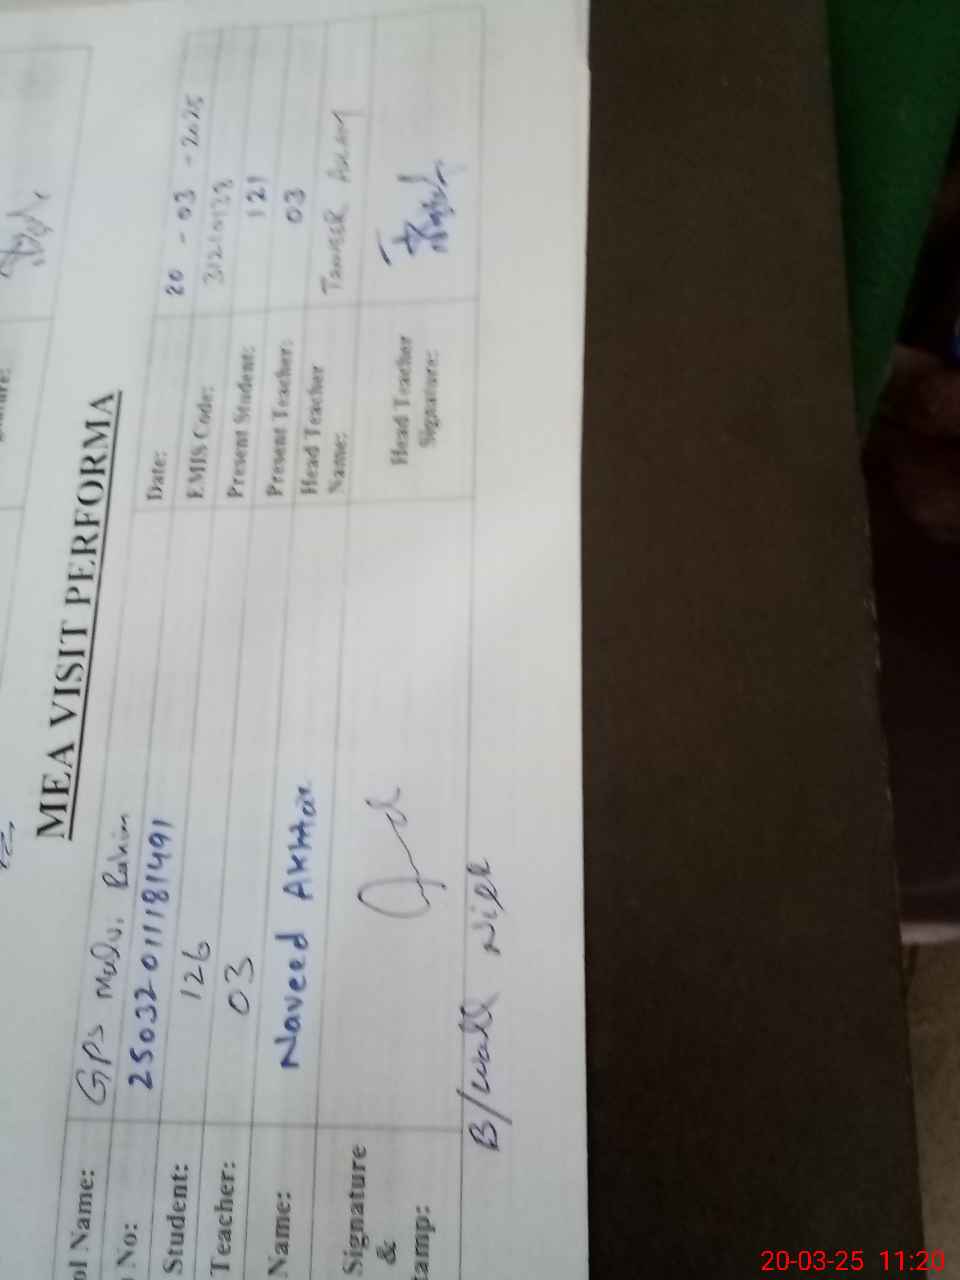 MEA VISIT PERFORMA
ol Name: GPS Rahim Date: 20 - 03 - 2025
No: 250320111181491 EMIS Code:
Student: 126 Present Student: 121
Teacher: 03 Present Teacher: 03
Name: Naveed Akhtar Head Teacher Name: TANVEER ASLAM
Signature & tamp: Head Teacher Signature:
B/wall Nill
20-03-25 11:20